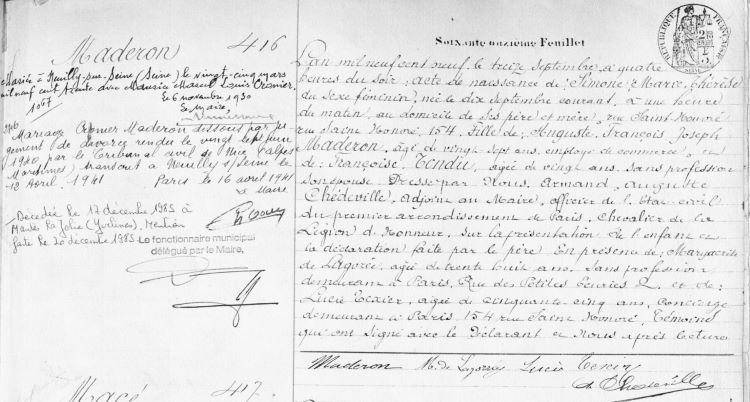 Maderon 416
Mariée à Neuilly-sur-Seine (Seine) le vingt-cinq mars
mil neuf cent trente avec Maurice Marcel Louis Cromer.
1067 le 6 novembre 1930
Le Maire,
Mariage Cromer Maderon dissout par ju-
gement de divorce rendu le vingt sept juin
1940 par le tribunal civil de Nice (Alpes
Maritimes) transcrit à Neuilly s/Seine le
12 Avril 1941 Paris le 16 avril 1941
Le Maire
Décédée le 17 décembre 1985 à
Mantes la Jolie (Yvelines), Mention
faite le 20 décembre 1985. Le fonctionnaire municipal
délégué par le Maire,
Macé 417
Soixante onzième Feuillet
RÉPUBLIQUE FRANÇAISE
L'an mil neuf cent neuf, le treize Septembre, à quatre
heures du soir, acte de naissance de: Simone Marie Thérèse
du sexe féminin, née le dix septembre courant, à une heure
du matin, au domicile de ses père et mère, rue Saint Honoré
rue Saint Honoré, 154. Fille de: Auguste, François, Joseph
Maderon, âgé de vingt sept ans, employé de commerce, et
de: Françoise Tendu, âgée de vingt ans, sans profession
son épouse. Dressé par Nous, Armand, Auguste
Chédeville, Adjoint au Maire, officier de l'état civil
du premier arrondissement de Paris, Chevalier de la
Légion d'Honneur, sur la présentation de l'enfant et
la déclaration faite par le père. En présence de: Marguerite
de Lagorée, âgée de trente huit ans, sans profession
demeurant à Paris, Rue des Petites Écuries 2, et de:
Lucie Texier, âgée de cinquante cinq ans, concierge
demeurant à Paris 154 rue Saint Honoré, Témoins
qui ont signé avec le Déclarant et Nous après lecture
Maderon M. de Lagorée Lucie Texier
A. Chédeville